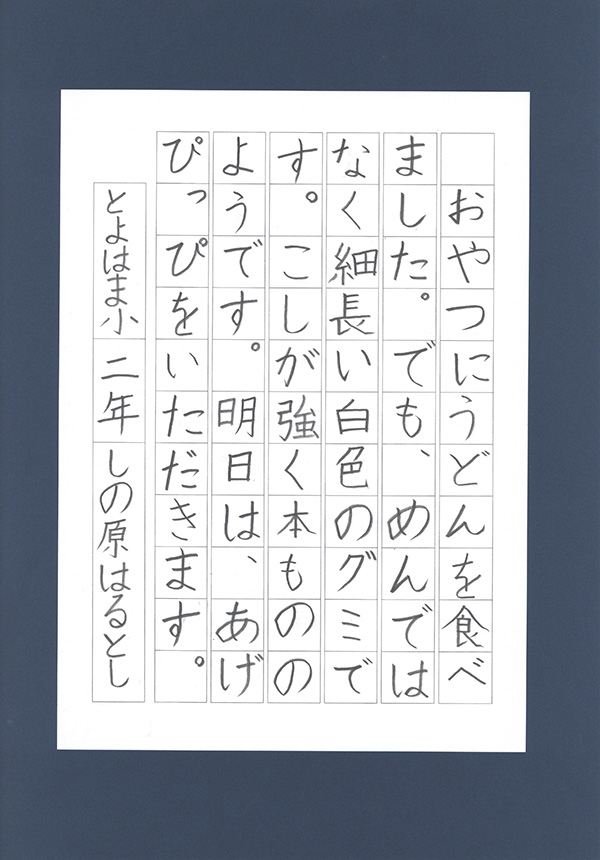 おやつにうどんを食べ
ました。でも、めんでは
なく細長い白色のグミで
す。こしが強く本ものの
ようです。明日は、あげ
ぴっぴをいただきます。
とよはま小 二年 しの原はるとし